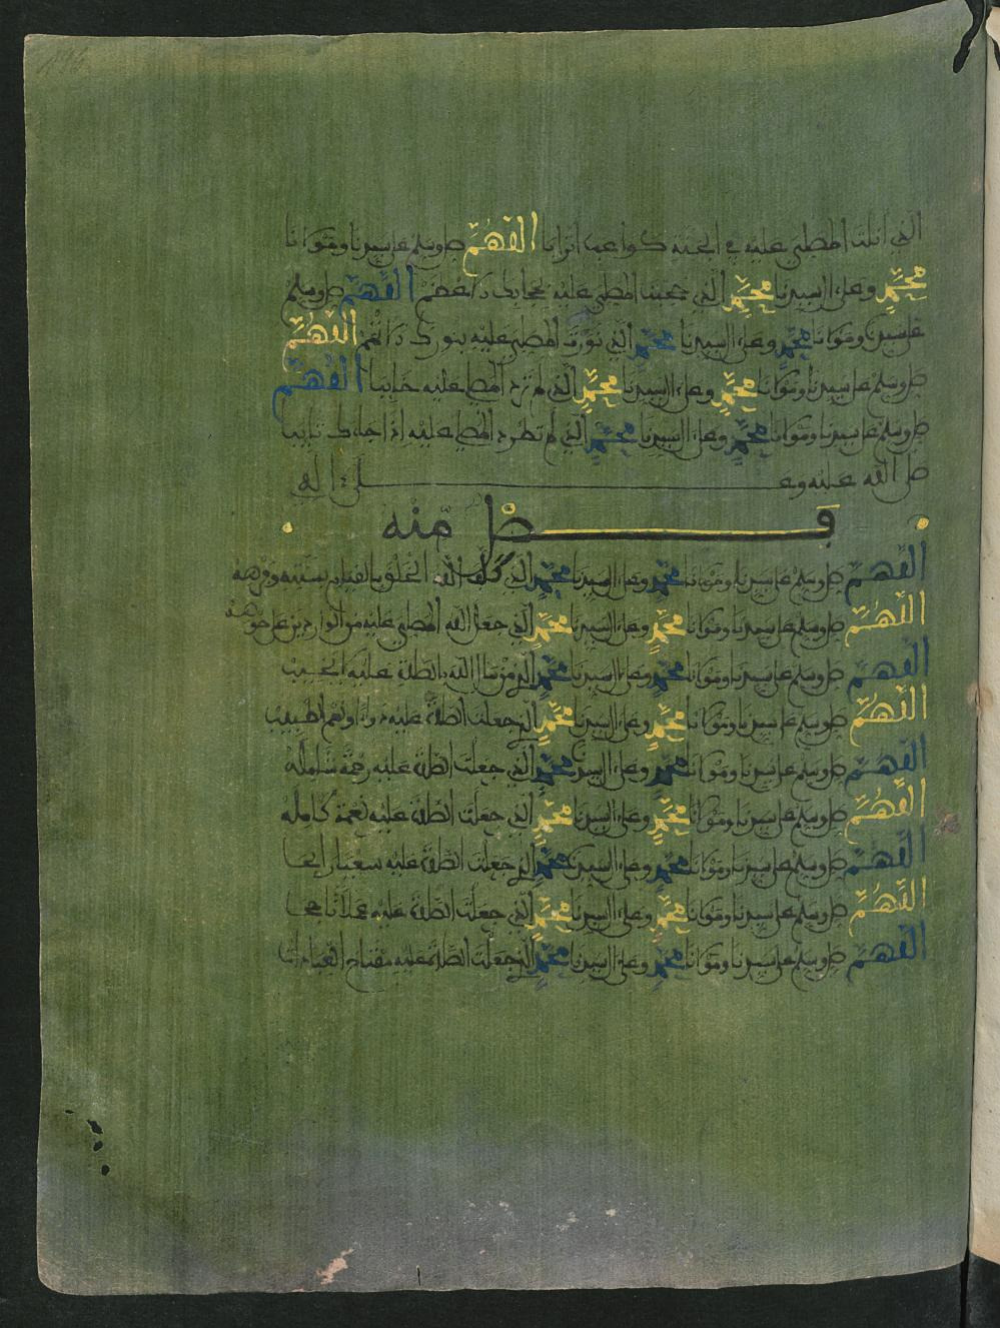 الذي انلت المصلي عليه في الجنة كواعبا اترابا اللهم صل وسلم على سيدنا ومولانا
محمد وعلى ال سيدنا محمد الذي المصلي عليه اللهم صل وسلم
على سيدنا ومولانا محمد وعلى ال سيدنا محمد الذي نورت المصلي عليه بنورك اللهم
صل وسلم على سيدنا ومولانا محمد وعلى ال سيدنا محمد الذي لم ترد المصلي عليه خايبا اللهم
صل وسلم على سيدنا ومولانا محمد وعلى ال سيدنا محمد الذي لم تطرد المصلي عليه اذا جاءك تايبا
صلى الله عليه وعلى اله
فصل منه
اللهم صل وسلم على سيدنا ومولانا محمد وعلى ال سيدنا محمد الذي كلف الله الخلق بالقيام بسنته
اللهم صل وسلم على سيدنا ومولانا محمد وعلى ال سيدنا محمد الذي جعل الله المصلي عليه من الواردين على حوضه
اللهم صل وسلم على سيدنا ومولانا محمد وعلى ال سيدنا محمد الذي الله بالصلاة عليه
اللهم صل وسلم على سيدنا ومولانا محمد وعلى ال سيدنا محمد الذي جعلت الصلاة عليه
اللهم صل وسلم على سيدنا ومولانا محمد وعلى ال سيدنا محمد الذي جعلت الصلاة عليه رحمة شاملة
اللهم صل وسلم على سيدنا ومولانا محمد وعلى ال سيدنا محمد الذي جعلت الصلاة عليه نعمة كاملة
اللهم صل وسلم على سيدنا ومولانا محمد وعلى ال سيدنا محمد الذي جعلت الصلاة عليه سعيا رابحا
اللهم صل وسلم على سيدنا ومولانا محمد وعلى ال سيدنا محمد الذي جعلت الصلاة عليه
اللهم صل وسلم على سيدنا ومولانا محمد وعلى ال سيدنا محمد الذي جعلت الصلاة عليه مفتاح